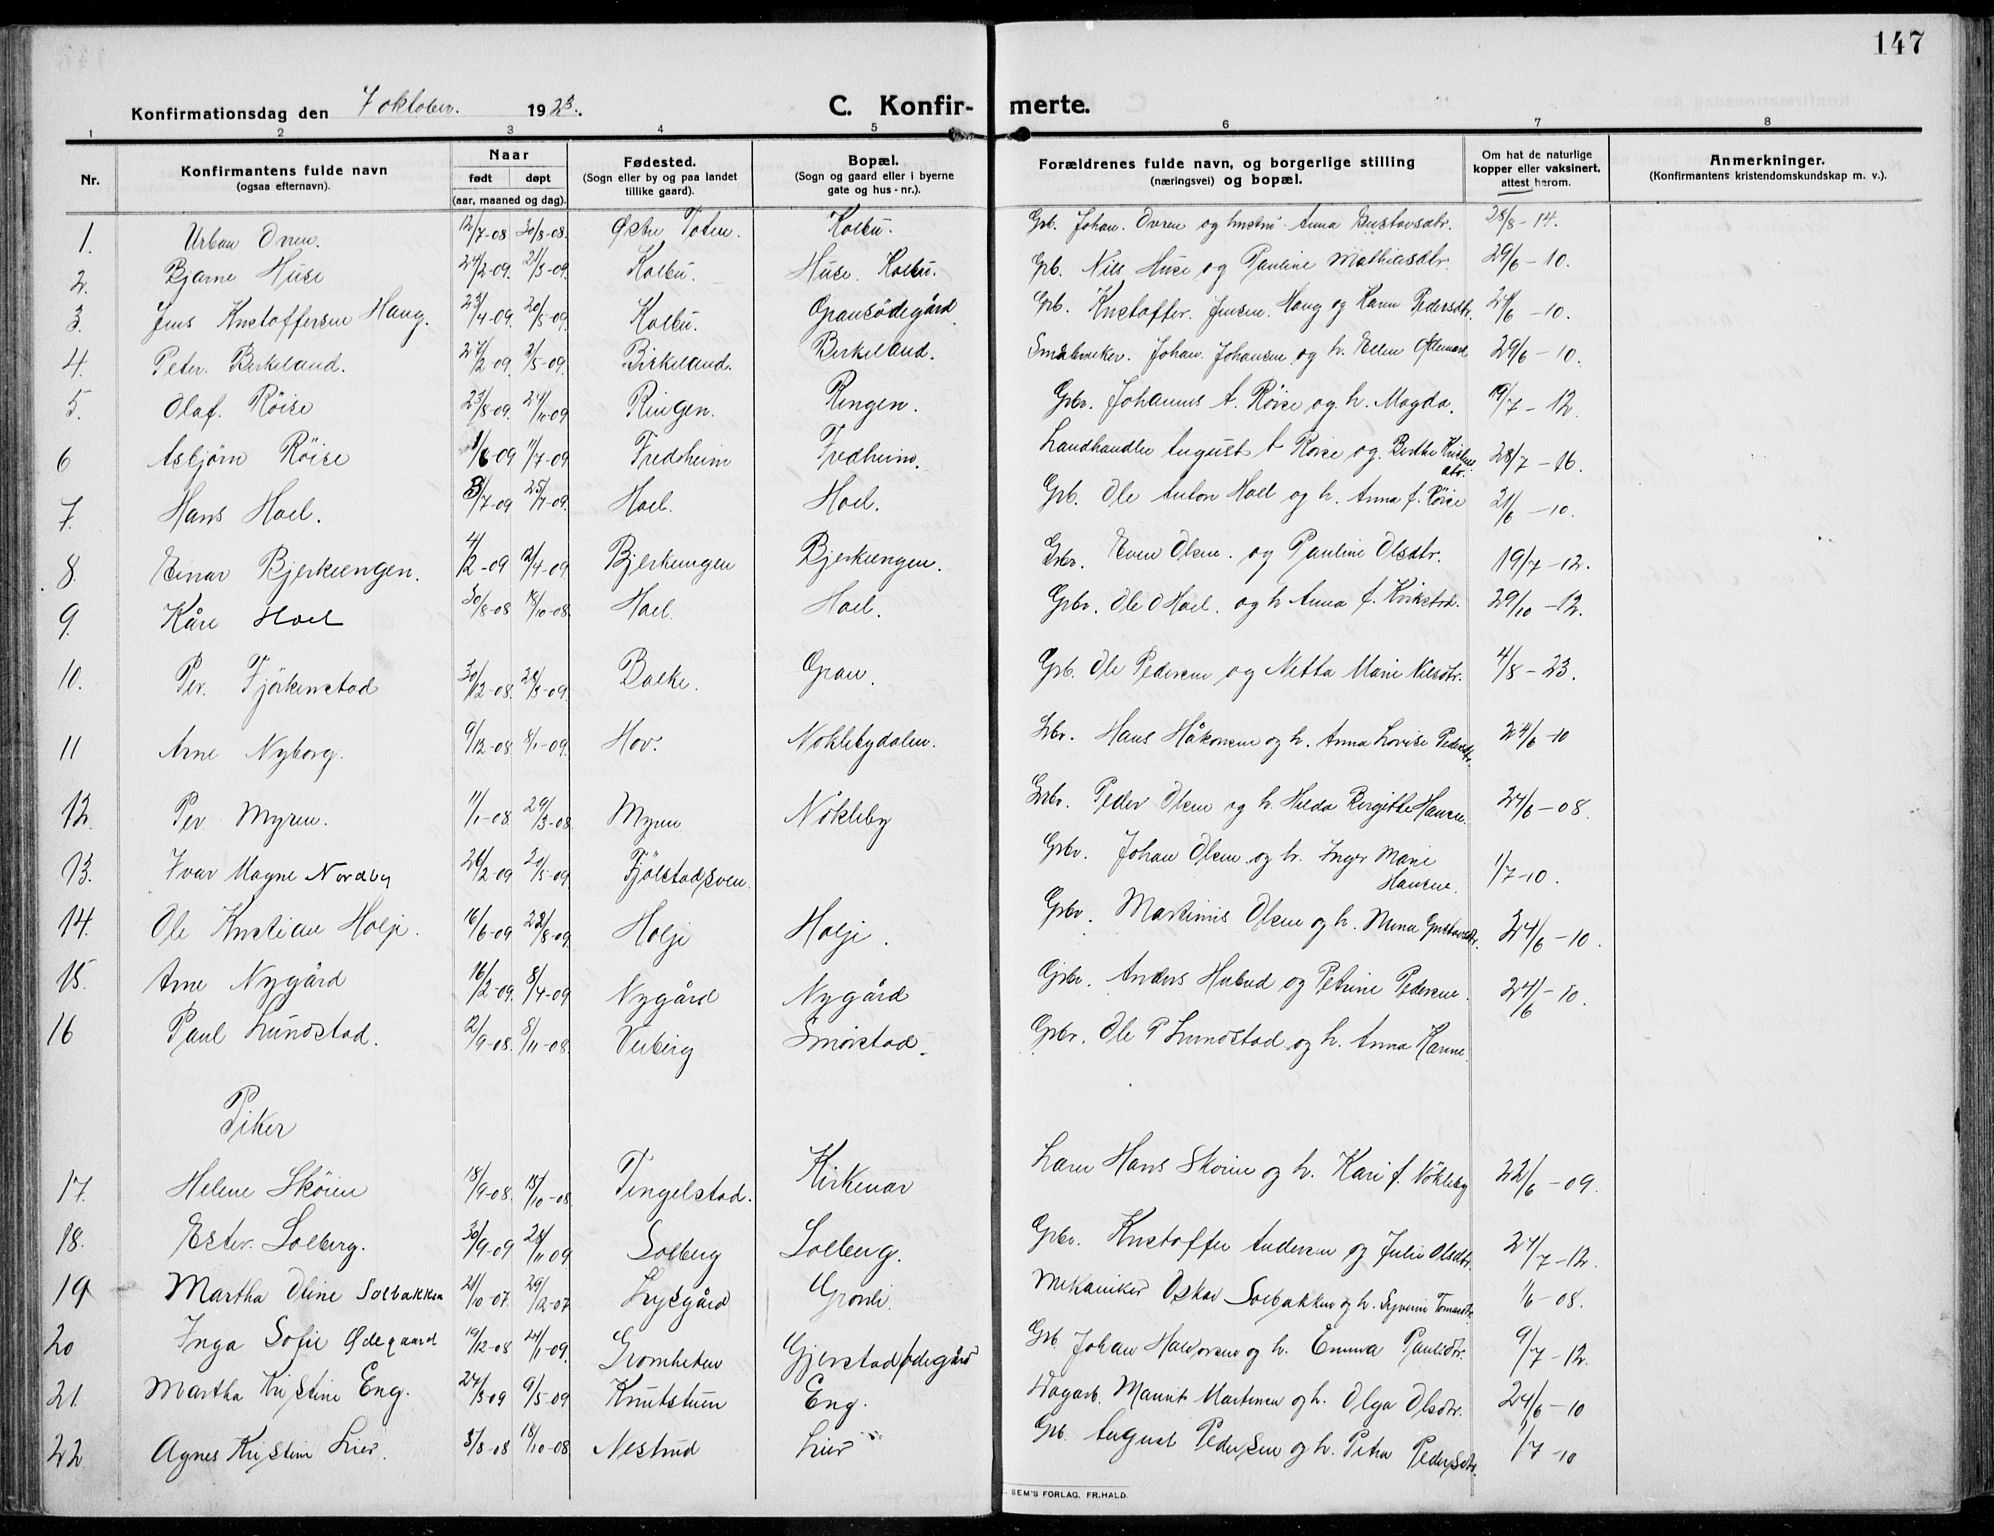 147
Konfirmationsdag den 7 oktober. 1923. C. Konfirmerte.
1 2 3 4 5 6 7 8
Nr. Konfirmantens fulde navn (ogsaa efternavn). Naar født døpt (aar, maaned og dag). Fødested. (Sogn eller by og paa landet tillike gaard). Bopæl. (Sogn og gaard eller i byerne gate og hus-nr.). Forældrenes fulde navn, og borgerlige stilling (næringsvei) og bopæl. Om hat de naturlige kopper eller vaksinert, attest herom. Anmerkninger. (Konfirmantens kristendomskundskap m. v.).
1. Urban 12/7-08 30/8-08. Østre Toten. Kolbu. Grb. Johan og hustru Anna Gustavsdtr. 28/8-14.
2. Bjarne Huse 24/2-09. 21/3-09. Kolbu. Huse. Kolbu. Grb. Nils Huse og Pauline Mathiasdtr. 29/6-10.
3. Jens Kristoffersen Haug. 23/4-09. 20/5-09. Kolbu. Gransødegård Grb. Kristoffer Jensen Haug og Karen Pedersdtr. 24/6-10.
4. Peter Birkeland. 27/2-09. 2/5-09. Birkeland. Birkeland. Småbruker. Johan Johansen og h. Ellen 29/6-10.
5. Olaf. Röise 23/8-09. 24/11-09 Ringen. Ringen. Grbr. Johannes A. Röise og h. Magda. 19/7-12.
6 Asbjørn Röise 1/6-09 11/7-09 Fredheim Fredheim. Landhandler August A Röise og Berthe Kristians dtr. 28/7-16.
7. Hans Hoel. 3/7-09 25/7-09. Hoel. Hoel. Grb. Ole Anton Hoel og h. Anna f. Röise 21/6-10.
8. Einar Bjerkeengen. 4/2-09 12/4-09 Bjerkeengen Bjerkeengen. Grbr. Even Olsen. og Pauline Olsdtr. 19/7-12.
9. Kåre Hoel 30/8-08 18/10-08. Hoel. Hoel. Grbr. Ole O Hoel. og h Anna f. Kvikstad. 29/10-12.
10. Per. Fjörkenstad 30/12-08. 28/3-09. Balke. Gran. Grb. Ole Pedersen og Netta Marie Nilsdtr. 4/8-23.
11 Arne Nyborg. 9/12-08. 8/1-09. Hov. Nöklebydalen. Grbr. Hans Håkonsen og h. Anna Lovise Pedersdtr. 24/6-10
12. Per Myren. 11/1-08. 29/3-08 Myren Nökleby Grbr. Peder Olsen og h. Hilda Birgitte Hansen. 24/6-08.
13. Ivar Magne Nordby 26/2-09 20/5-09. Grbr. Johan Olsen og h. Inger Marie Hansen. 1/7-10.
14. Ole Kristian Holje. 16/6-09 22/8-09. Holje Holje. Grbr. Martinus Olsen og h. Mina Gustavsdtr. 24/6-10.
15. Arne Nygård 16/2-09. 8/4-09 Nygård Nygård Grbr. Anders og Petrine Pedersen. 24/6-10.
16 Paul Lundstad. 12/9-08. 8/11-08. Veiberg Smörstad. Grbr. Ole P Lundstad og h. Anna Karine.
Piker
17. Helene Sköien 18/9-08. 18/10-08. Tingelstad. Kirkenær Lærer Hans Sköien og h. Kari f. Nökleby 22/6-09.
18. Ester. Solberg. 30/9-09 28/11 09 Solberg Solberg. Grbr. Kristoffer Andersen og Julie Olsdtr. 27/7-12.
19 Martha Oline Solbakken 21/10-07. 29/12-07 Lysgård Grönli. Mekaniker Oskar Solbakken og h. Syverine Tomasdtr. 1/6-08.
20 Inga Sofie Ødegaard 19/12-08 24/1-09. Gromheten Gjerstadødegård Grb. Johan Halvorsen og h. Emma Paulsdtr. 9/7-12.
21. Martha Kristine Eng. 27/3-09 9/5-09 Knutstuen Eng. Dagarb. Martinsen og h. Olga Olsdtr. 24/6-10
22 Agnes Kristine Lier. 3/8-08 18/10-08 Nestrud Lier Grb. August Pedersen og h. Petra Pedersdtr. 1/7-10
SEM'S FORLAG, FR.HALD.